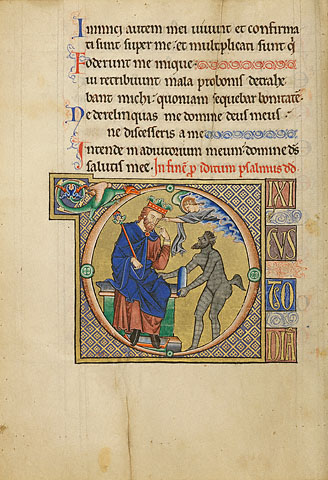 Inimici autem mei uiuunt et confirma
ti sunt super me: et multiplicati sunt q̇
oderunt me inique.
Qui retribuunt mala pro bonis detrahe
bant michi: quoniam sequebar bonitatē.
Ne derelinquas me domine deus meus
ne discesseris a me
Intende in adiutorium meum: domine ds̄
salutis mee. In finē p̄ iditum psalmus dd
D IXI
CUS
TO
DIA